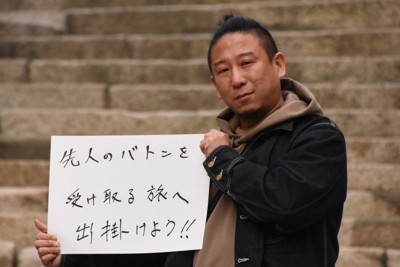 先人のバトンを
受け取る旅へ
出掛けよう!!